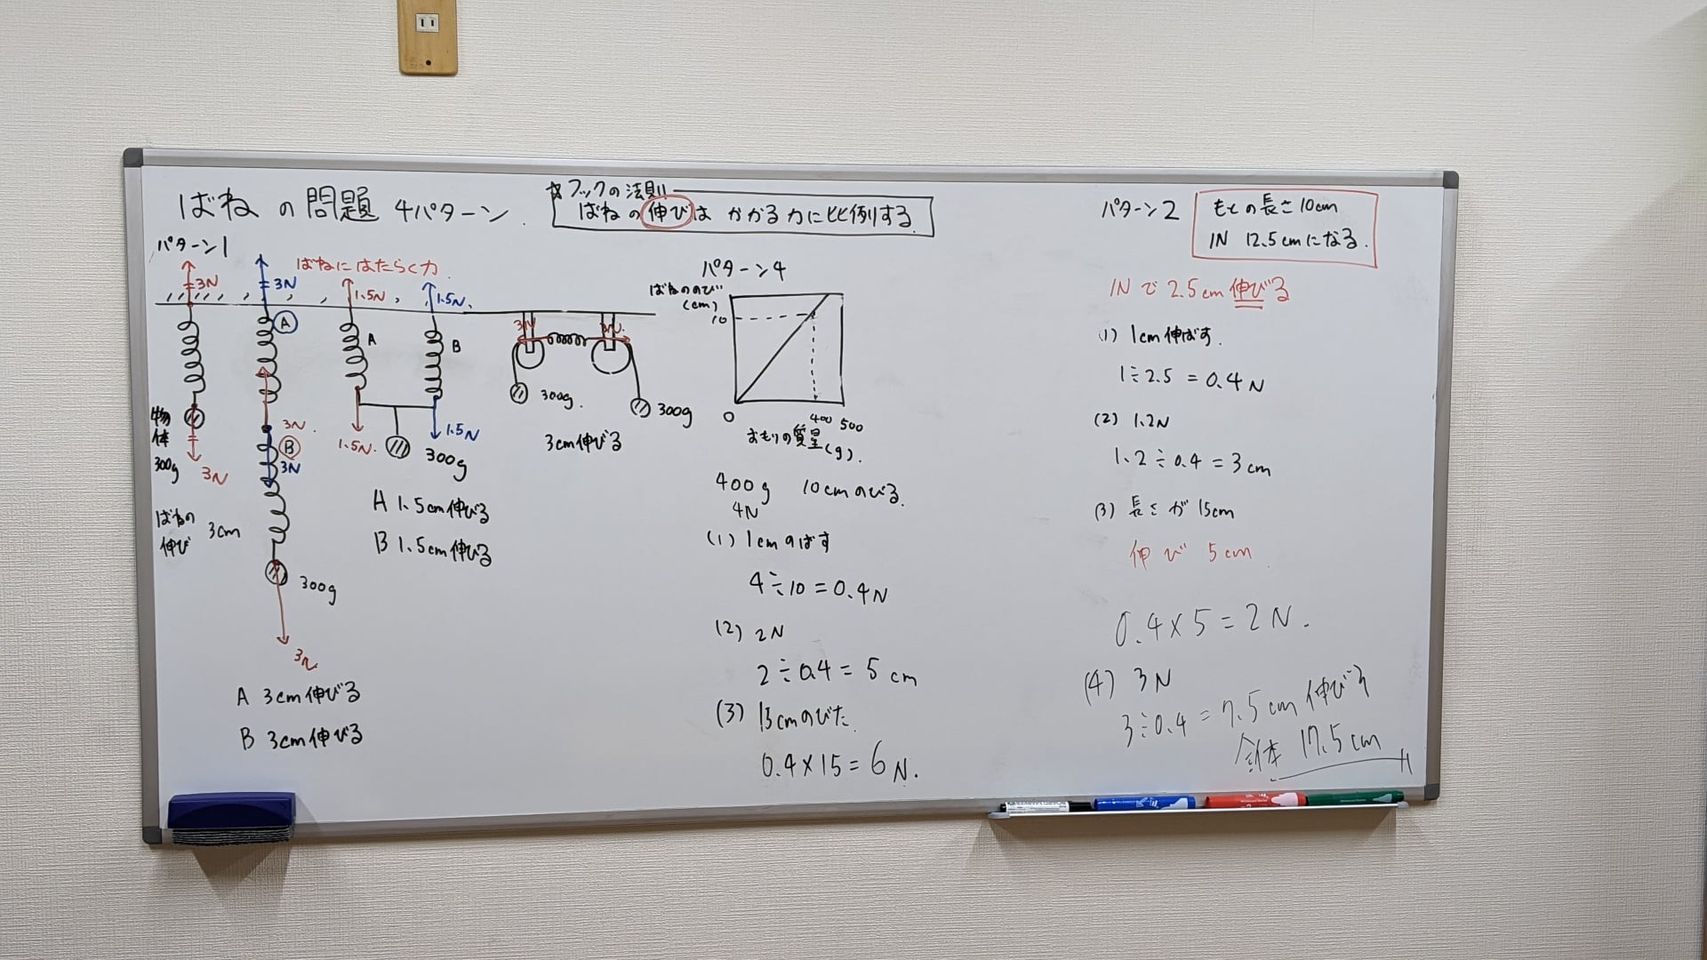 ばねの問題 4パターン.
☆フックの法則
ばねの伸びは かかる力に比例する.
パターン1
ばねにはたらく力.
3N
3N
1.5N
1.5N.
A
A
B
3N
3N.
物体
300g
3N
3N.
B
3N
1.5N.
1.5N
300g
300g.
300g
3cm伸びる
ばねの
伸び 3cm
A 1.5cm伸びる
B 1.5cm伸びる
300g
3N
A 3cm伸びる
B 3cm伸びる
パターン4
ばねののび
(cm)
10
0
400 500
おもりの質量(g).
400g 10cmのびる.
4N
(1) 1cmのばす
4÷10=0.4N
(2) 2N
2÷0.4=5cm
(3) 15cmのびた.
0.4×15=6N.
パターン2
もとの長さ10cm
1N 12.5cmになる.
1Nで2.5cm伸びる
(1) 1cm伸ばす.
1÷2.5=0.4N
(2) 1.2N
1.2÷0.4=3cm
(3) 長さが15cm
伸び 5cm
0.4×5=2N.
(4) 3N
3÷0.4=7.5cm伸びる
全体 17.5cm